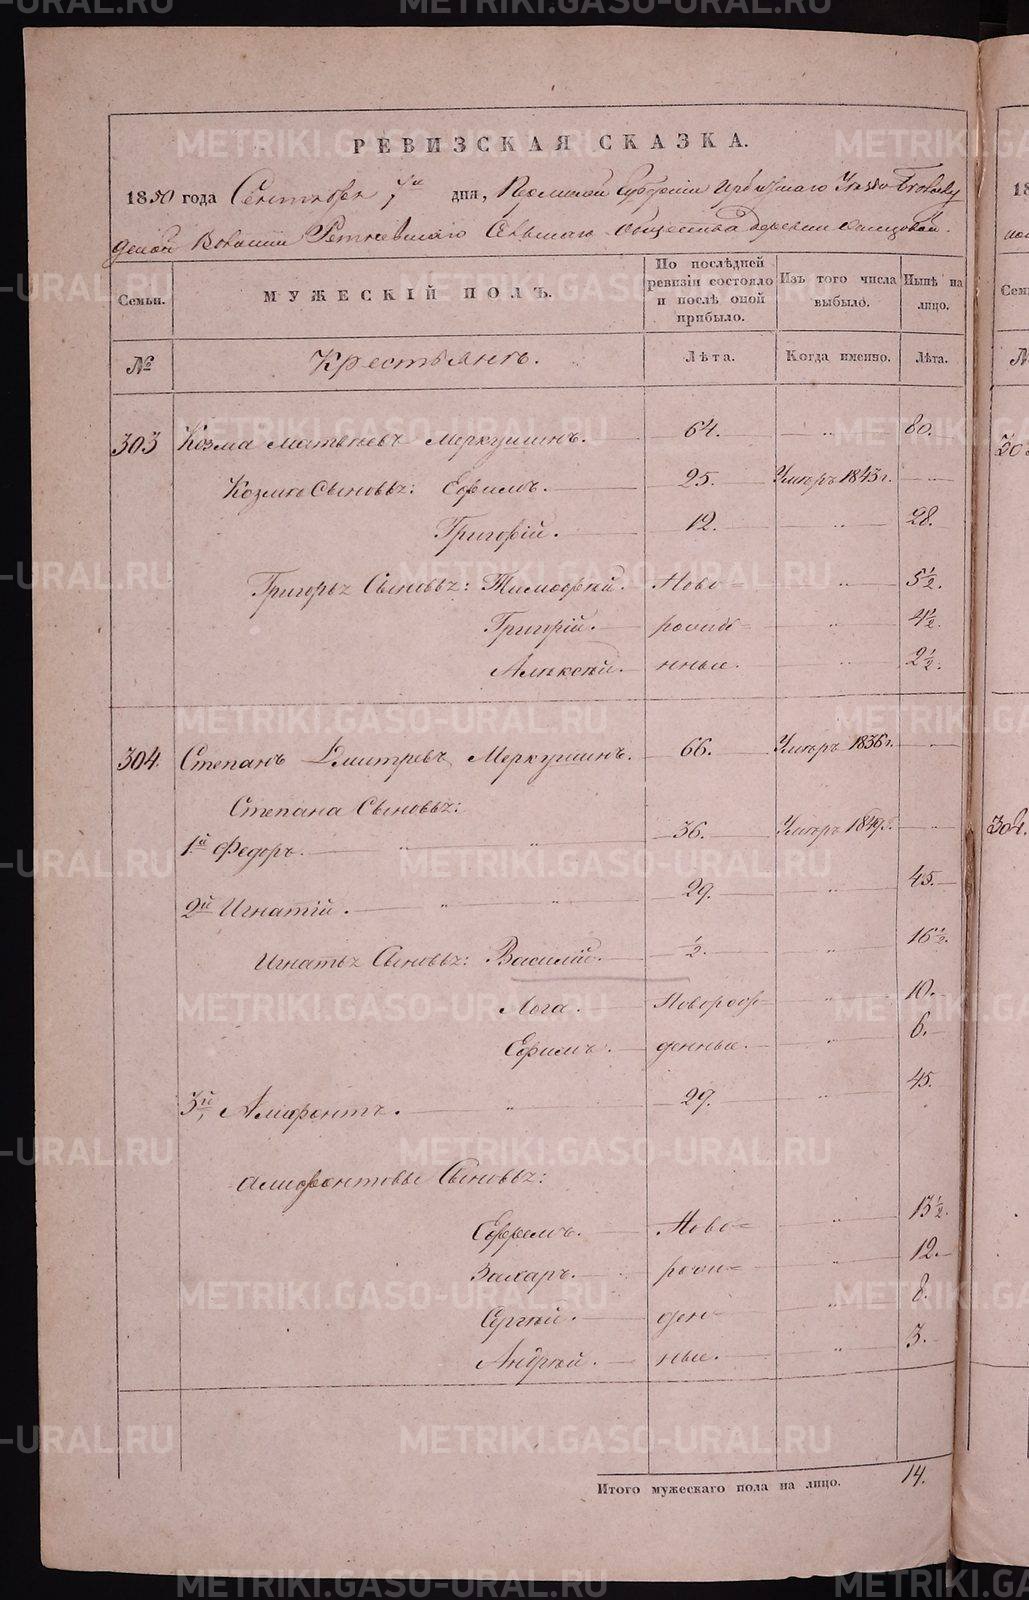 РЕВИЗСКАЯ СКАЗКА.
1850 года Сентября 7го дня, Пермской Губернии Ирбитскаго Уезда
волости Ретневскаго Сельскаго Общества деревни
Семьи. МУЖЕСКІЙ ПОЛЪ. По послѣдней ревизіи состояло и послѣ оной прибыло. Изъ того числа выбыло. Нынѣ на лицо.
№ Крестьянъ. Лѣта. Когда именно. Лѣта.
303 Козма Матвѣевъ Меркушинъ. 64. " 80.
Козмы Сыновьѣ: Ефимъ. 25. Умеръ 1843 г. "
Григорій. 12. " 28.
Григорья Сыновьѣ: Тимофѣй. Ново- " 5½.
Григорій. рожде- " 4½.
Алексѣй. нные. " 2½.
304. Степанъ Дмитревъ Меркушинъ. 66. Умеръ 1836 г.
Степана Сыновьѣ:
1й Федоръ. " " 36. Умеръ 1849 г. "
2й Игнатій. " " 29. " 45.
Игнатья Сыновьѣ: Василій. ½. " 16½.
Лога. Новорож- " 10.
Ефимъ. денные. " 6.
3й, Алифонтъ. " 29. 45.
Алифонтовы Сыновьѣ:
Ефремъ. Ново- " 13½.
Захаръ. рож- " 12.
Сергѣй. ден- " 8.
Андрѣй. ные. " 3.
Итого мужескаго пола на лицо. 14.